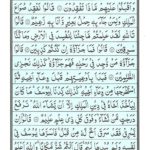 وَأَقْبَلُوا۟ عَلَيْهِم مَّاذَا تَفْقِدُونَ قَالُوا۟ نَفْقِدُ صُوَاعَ
ٱلْمَلِكِ وَلِمَن جَآءَ بِهِۦ حِمْلُ بَعِيرٍ وَأَنَا۠ بِهِۦ زَعِيمٌ قَالُوا۟
تَٱللَّهِ لَقَدْ عَلِمْتُم مَّا جِئْنَا لِنُفْسِدَ فِى ٱلْأَرْضِ وَمَا كُنَّا
سَٰرِقِينَ قَالُوا۟ فَمَا جَزَٰٓؤُهُۥٓ إِن كُنتُمْ كَٰذِبِينَ قَالُوا۟
جَزَٰٓؤُهُۥ مَن وُجِدَ فِى رَحْلِهِۦ فَهُوَ جَزَٰٓؤُهُۥ كَذَٰلِكَ نَجْزِى
ٱلظَّٰلِمِينَ فَبَدَأَ بِأَوْعِيَتِهِمْ قَبْلَ وِعَآءِ أَخِيهِ ثُمَّ
ٱسْتَخْرَجَهَا مِن وِعَآءِ أَخِيهِ كَذَٰلِكَ كِدْنَا لِيُوسُفَ مَا كَانَ
لِيَأْخُذَ أَخَاهُ فِى دِينِ ٱلْمَلِكِ إِلَّآ أَن يَشَآءَ ٱللَّهُ نَرْفَعُ دَرَجَٰتٍ
مَّن نَّشَآءُ وَفَوْقَ كُلِّ ذِى عِلْمٍ عَلِيمٌ قَالُوٓا۟ إِن يَسْرِقْ
فَقَدْ سَرَقَ أَخٌ لَّهُۥ مِن قَبْلُ فَأَسَرَّهَا يُوسُفُ فِى